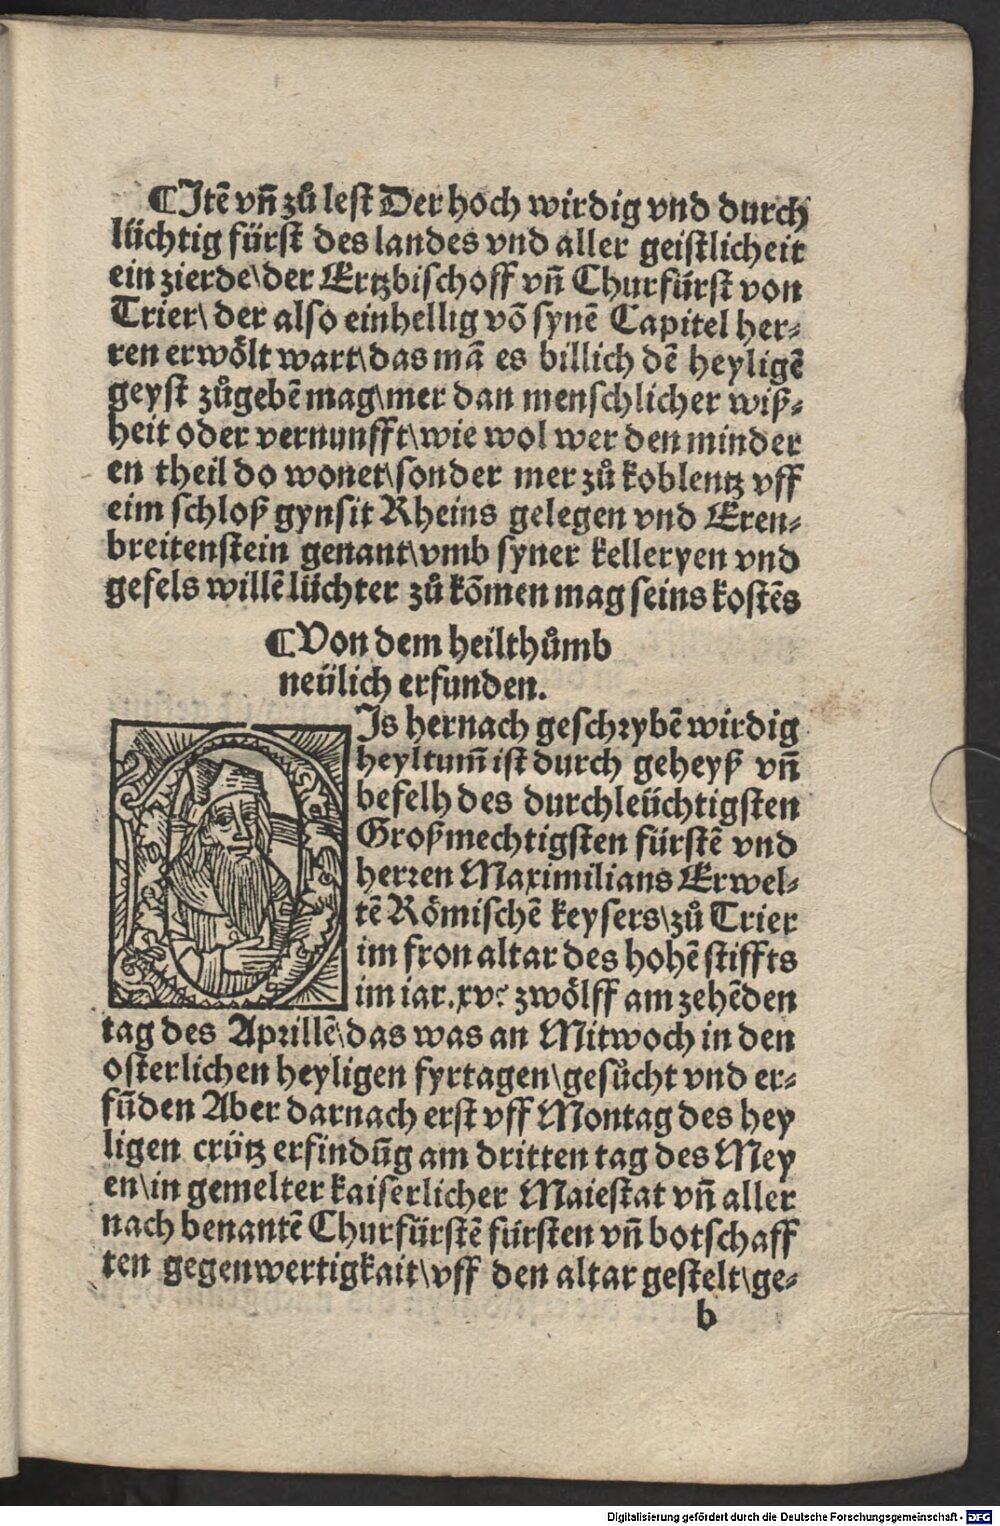 ¶Jtē vn̄ zů lest Der hoch wirdig vnd durch
lüchtig fürst des landes vnd aller geistlicheit
ein zierde\der Ertzbischoff vn̄ Churfürst von
Trier\ der also einhellig vō synē Capitel her⸗
ren erwölt wart\das mā es billich dē heyligē
geyst zůgebē mag\mer dan menschlicher wiß⸗
heit oder vernunfft\wie wol wer den minder
en theil do wonet\sonder mer zů koblentz vff
eim schloß gynsit Rheins gelegen vnd Eren⸗
breitenstein genant\vmb syner kelleryen vnd
gefels willē lüchter zů kōmen mag seins kostēs
¶Von dem heilthůmb
neülich erfunden.
Js hernach geschrybē wirdig
heyltum̄ ist durch geheyß vn̄
befelh des durchleüchtigsten
Großmechtigsten fürstē vnd
herren Maximilians Erwel⸗
tē Römischē keysers\zů Trier
im fron altar des hohē stiffts
im iar.xvᶜ zwölff am zehēden
tag des Aprillē\das was an Mitwoch in den
osterlichen heyligen fyrtagen\gesůcht vnd er⸗
fūden Aber darnach erst vff Montag des hey
ligen crütz erfindūg am dritten tag des Mey
en\in gemelter kaiserlicher Maiestat vn̄ aller
nach benantē Churfürstē fürsten vn̄ botschaff
ten gegenwertigkait\vff den altar gestelt\ge⸗
b
Digitalisierung gefördert durch die Deutsche Forschungsgemeinschaft - DFG